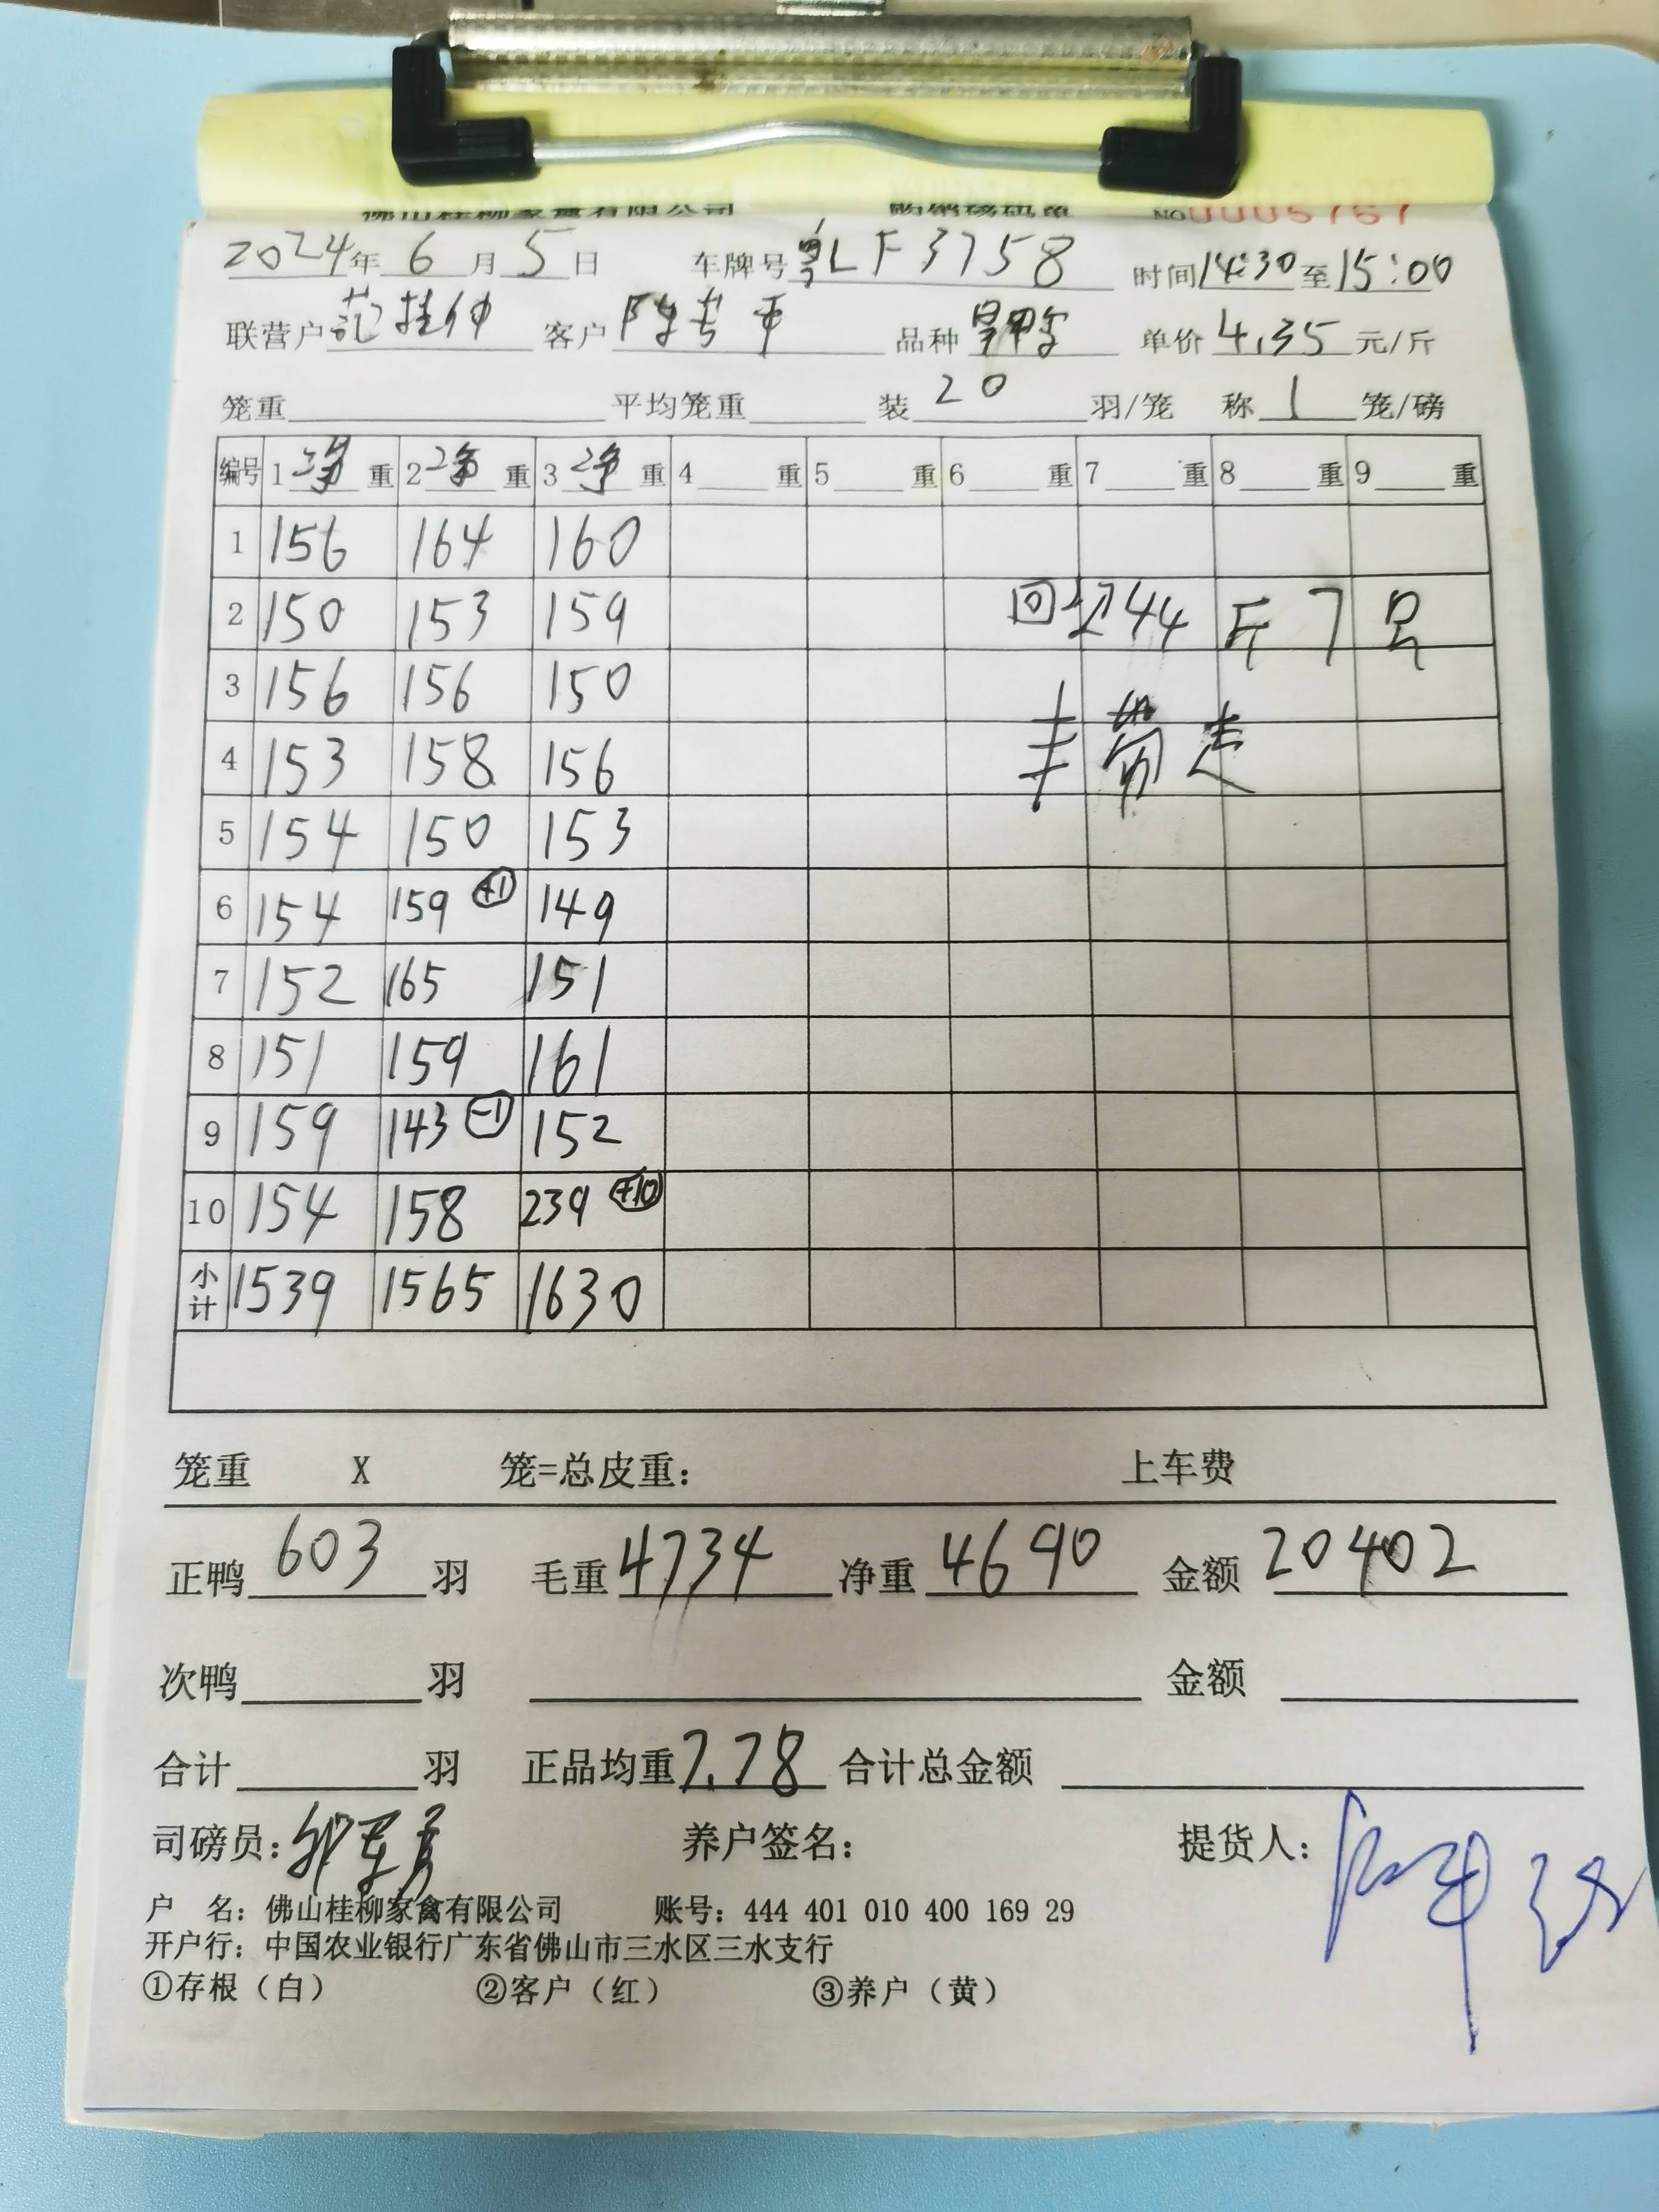 佛山桂柳家禽有限公司 购销磅码单 NO 0005767
2024年 6 月 5 日 车牌号 粤LF3758 时间 14:30 至 15:00
联营户 范桂仲 客户 陈 平 品种 单价 4.35 元/斤
笼重 平均笼重 装 20 羽/笼 称 1 笼/磅
编号 1 净 重 2 净 重 3 净 重 4 重 5 重 6 重 7 重 8 重 9 重
1 156 164 160
2 150 153 159 回 44 斤 7 只
3 156 156 150
4 153 158 156 带走
5 154 150 153
6 154 159 +1 149
7 152 165 151
8 151 159 161
9 159 143 -1 152
10 154 158 239 +10
小计 1539 1565 1630
笼重 X 笼=总皮重: 上车费
正鸭 603 羽 毛重 4734 净重 4690 金额 20402
次鸭 羽 金额
合计 羽 正品均重 7.78 合计总金额
司磅员: 养户签名: 提货人:
户 名: 佛山桂柳家禽有限公司 账号: 444 401 010 400 169 29
开户行: 中国农业银行广东省佛山市三水区三水支行
①存根（白） ②客户（红） ③养户（黄）